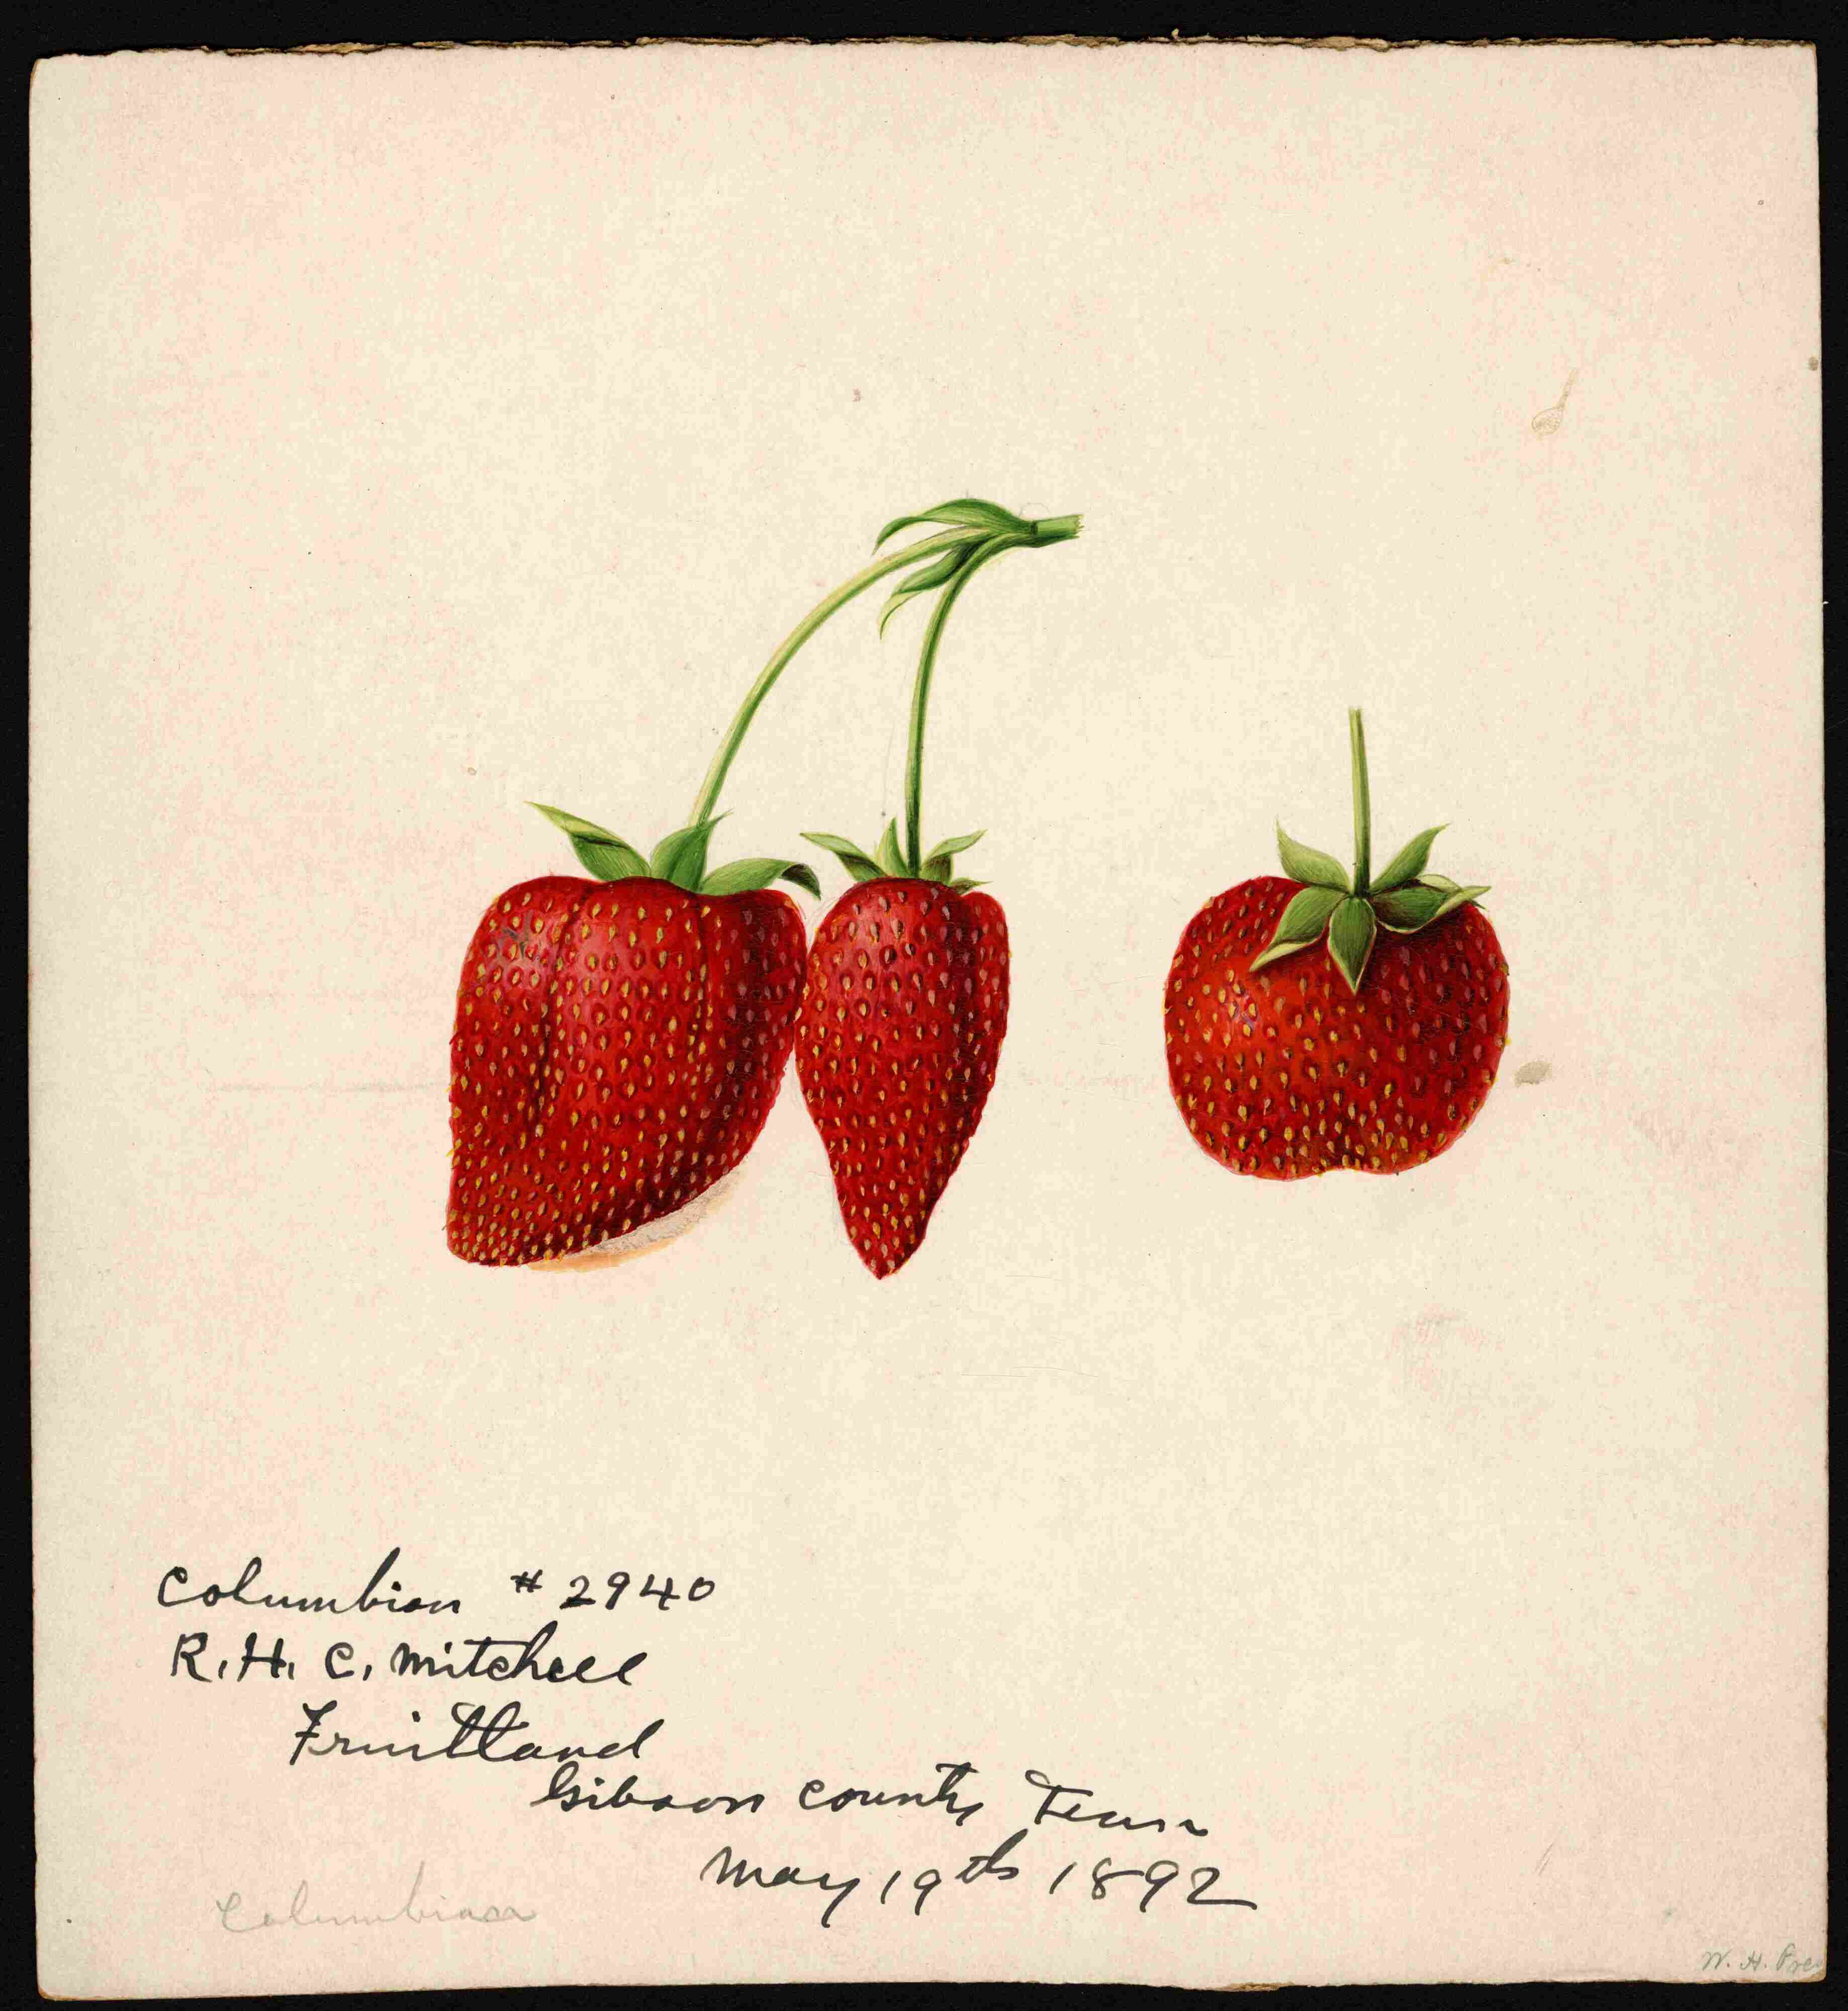 Columbian # 2940
R. H. C. Mitchell
Fruitland
Gibson County Tenn
May 19th 1892
Columbian
W. H. Pres